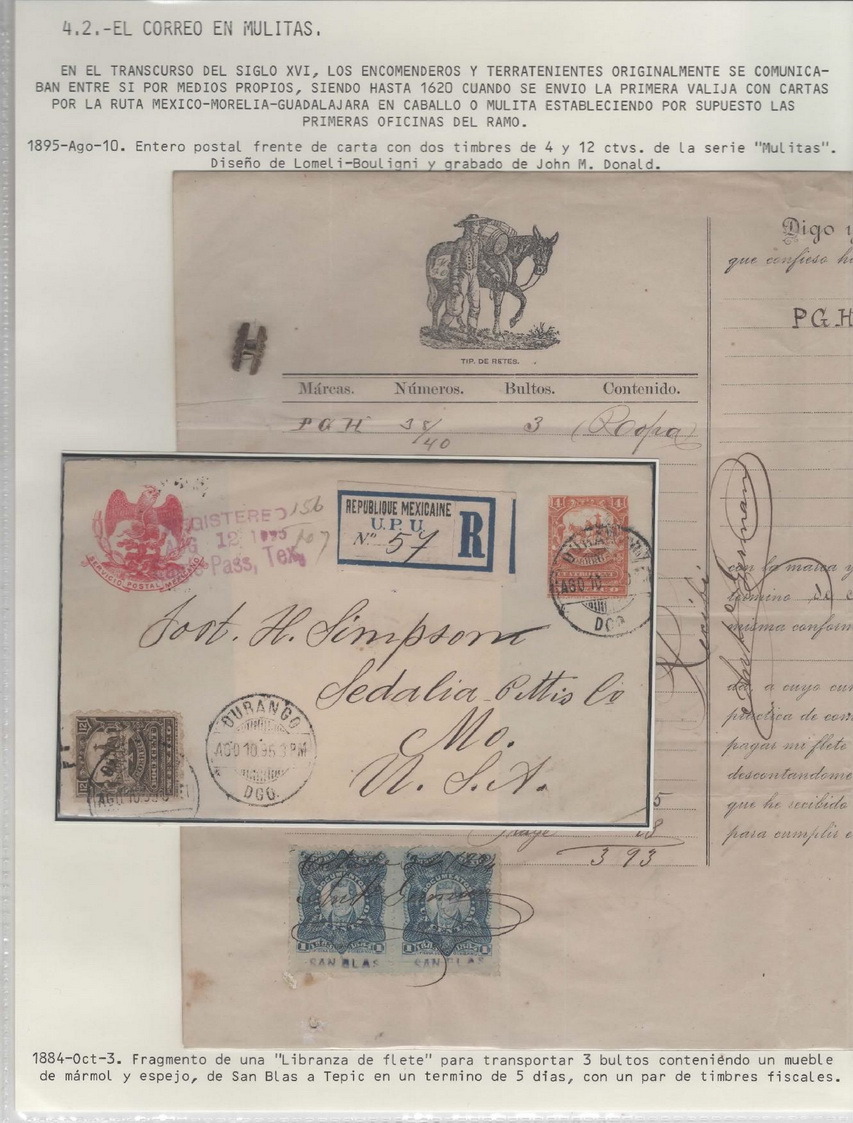 4.2.-EL CORREO EN MULITAS.
EN EL TRANSCURSO DEL SIGLO XVI, LOS ENCOMENDEROS Y TERRATENIENTES ORIGINALMENTE SE COMUNICA-
BAN ENTRE SI POR MEDIOS PROPIOS, SIENDO HASTA 1620 CUANDO SE ENVIO LA PRIMERA VALIJA CON CARTAS
POR LA RUTA MEXICO-MORELIA-GUADALAJARA EN CABALLO O MULITA ESTABLECIENDO POR SUPUESTO LAS
PRIMERAS OFICINAS DEL RAMO.
1895-Ago-10. Entero postal frente de carta con dos timbres de 4 y 12 ctvs. de la serie "Mulitas".
Diseño de Lomeli-Bouligni y grabado de John M. Donald.
Digo y
que confieso
PGH
TIP. DE RETES.
Márcas. Números. Bultos. Contenido.
PGH 38/40 3 (Ropa)
SERVICIO POSTAL MEXICANO
REGISTERED
12 1895
Pass, Tex.
156
107
REPUBLIQUE MEXICAINE
U.P.U.
Nº 57
R
4
DURANGO
AGO 10
DGO.
Post. H. Simpson
Sedalia Pettis Co
Mo.
U.S.A.
12
DURANGO
AGO 10 95 3 PM
DGO.
AGO 10
Recibí
con la marca y
termino de
misma conform
da, a cuyo cum
práctica de com
pagar mi flete
descontandome
que he recibido
para cumplir
3 93
DOCUMENTOS
DOCUMENTOS
SAN BLAS SAN BLAS
1884-Oct-3. Fragmento de una "Libranza de flete" para transportar 3 bultos conteniéndo un mueble
de mármol y espejo, de San Blas a Tepic en un termino de 5 días, con un par de timbres fiscales.